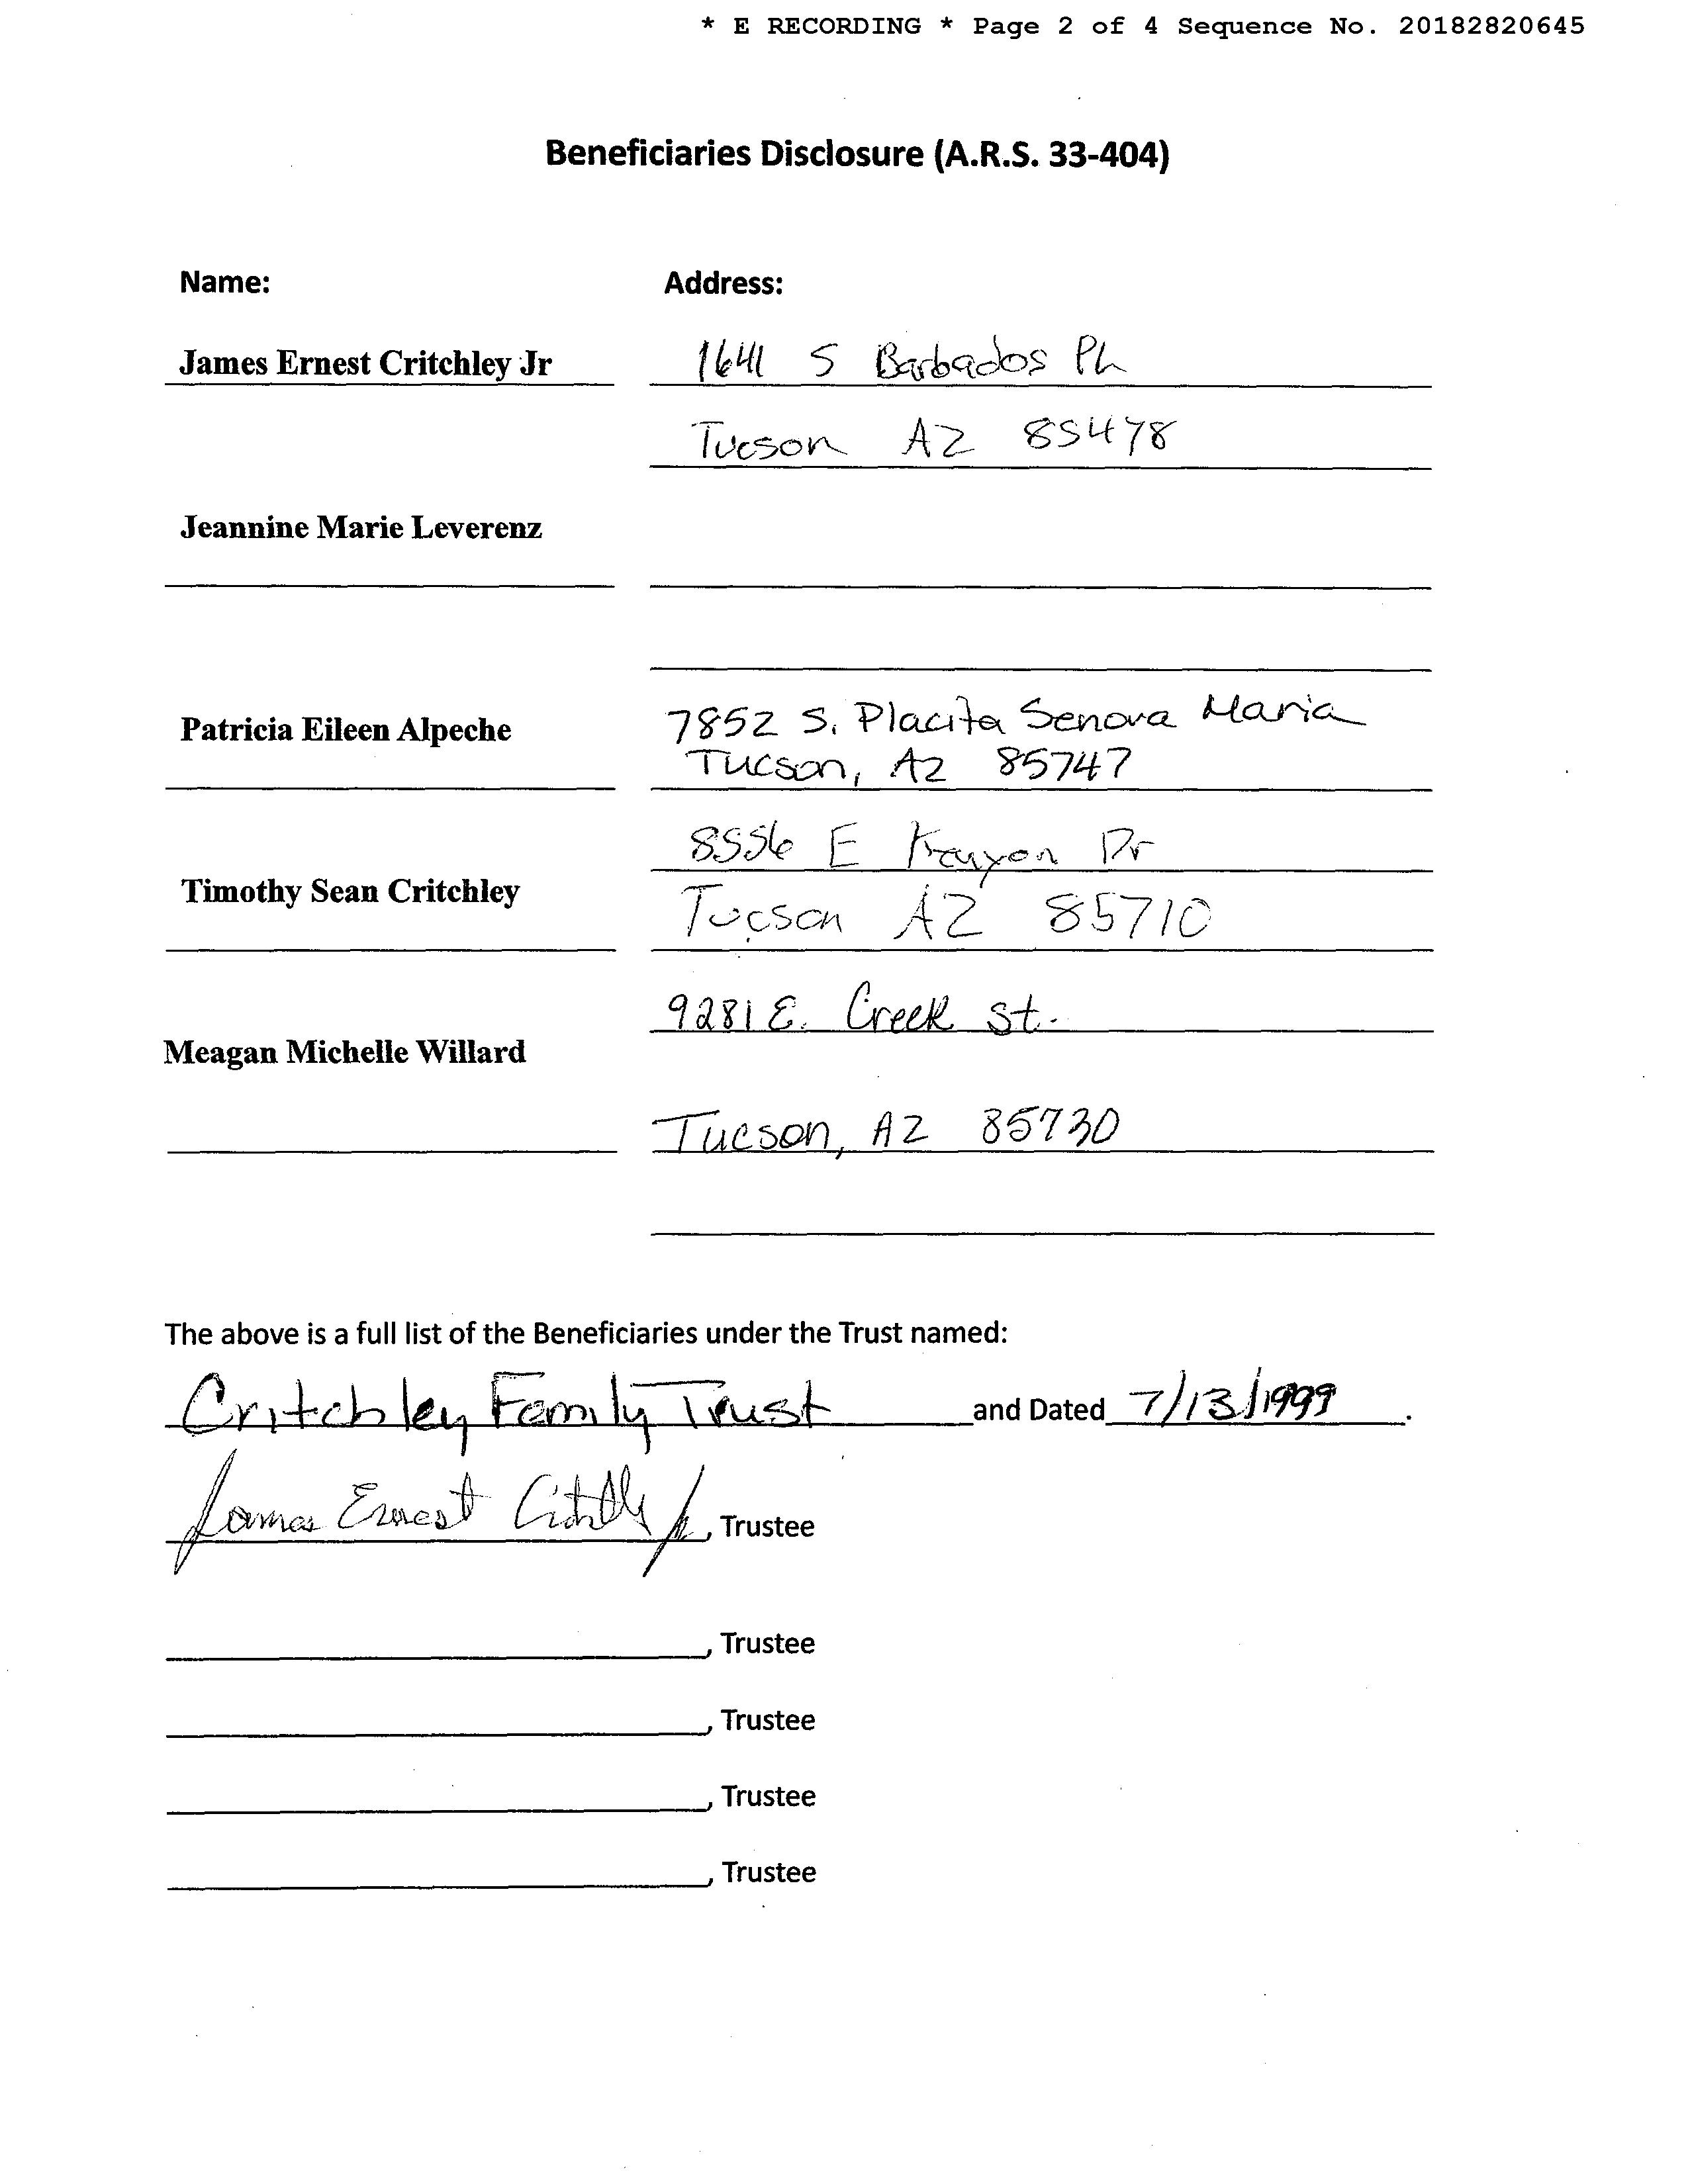 * E RECORDING * Page 2 of 4 Sequence No. 20182820645
Beneficiaries Disclosure (A.R.S. 33-404)
Name: Address:
James Ernest Critchley Jr 1641 S Barbados PL
Tucson AZ 85478
Jeannine Marie Leverenz
Patricia Eileen Alpeche 7852 S. Placita Senora Maria
Tucson, AZ 85747
8556 E Kenyon Dr
Timothy Sean Critchley Tucson AZ 85710
9281 E. Creek St.
Meagan Michelle Willard
Tucson, AZ 85730
The above is a full list of the Beneficiaries under the Trust named:
Critchley Family Trust and Dated 7/13/1999.
James Ernest Critchley Jr, Trustee
, Trustee
, Trustee
, Trustee
, Trustee